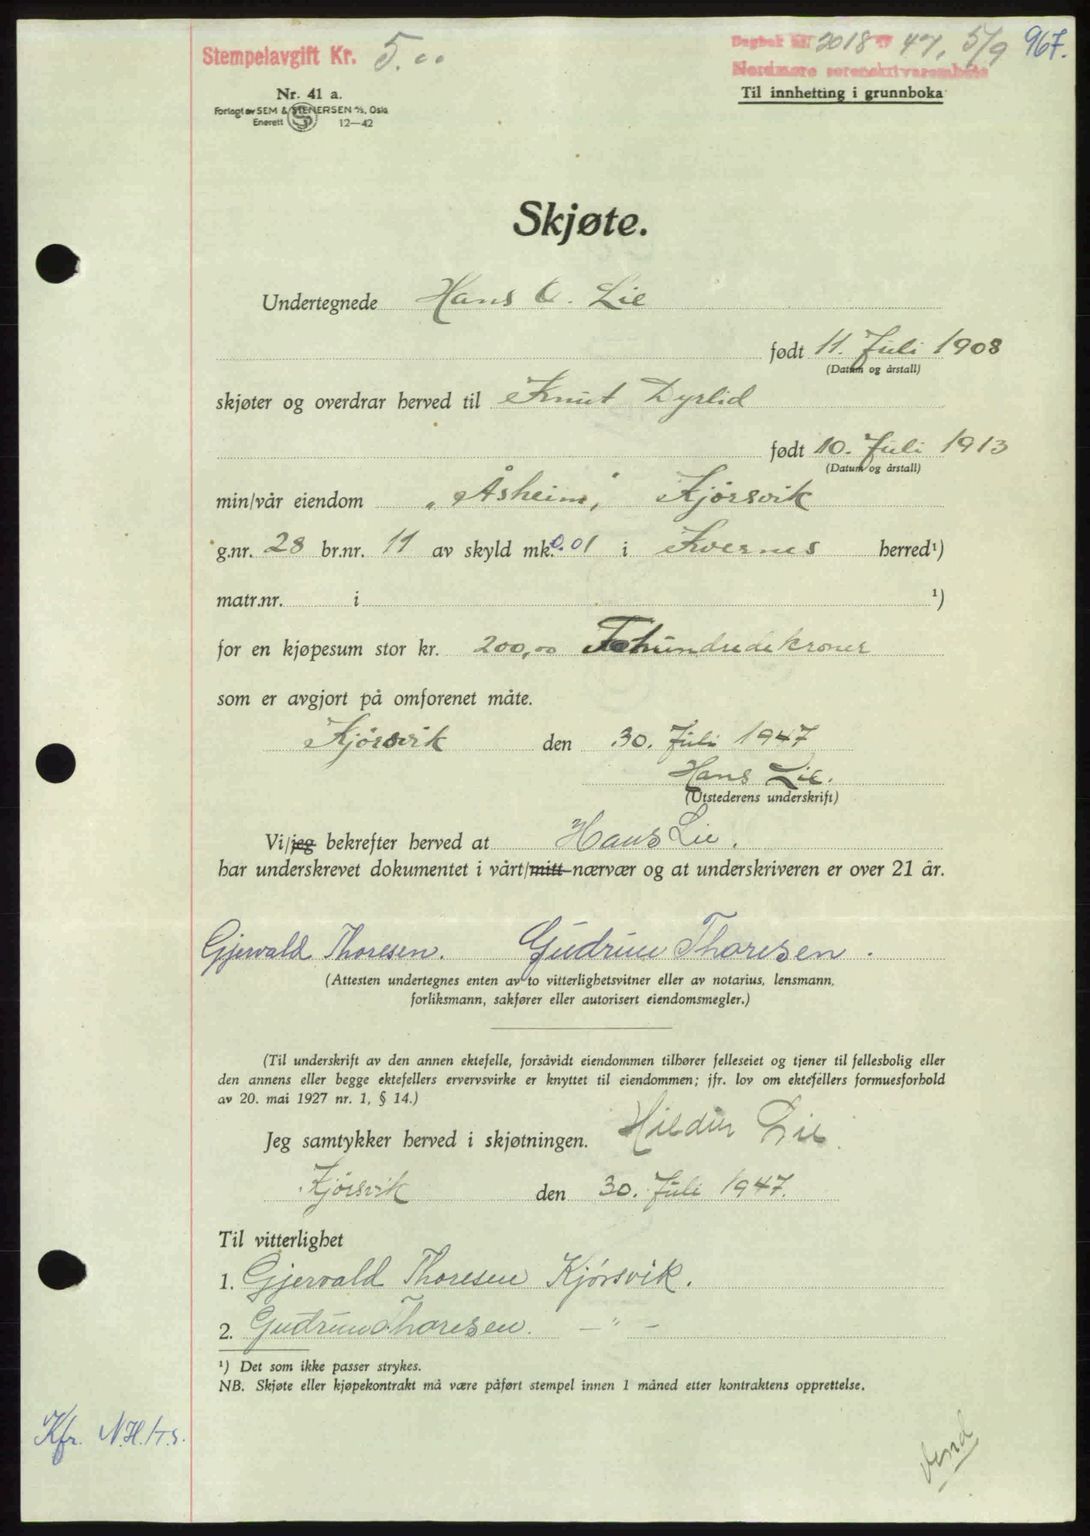 Stempelavgift Kr. 5.00
Dagbok nr. 2018 47, 5/9 967.
Nordmøre sorenskriverembete
Nr. 41 a.
Til innhetting i grunnboka
Forlagt av SEM & STENERSEN A/S, Oslo
Enerett 12—42
Skjøte.
Undertegnede Hans O. Lie
født 11. Juli 1908
(Datum og årstall)
skjøter og overdrar herved til Knut Dyrlid
født 10. Juli 1913
(Datum og årstall)
min/vår eiendom „Åsheim," Kjørsvik
g.nr. 28 br.nr. 11 av skyld mk. 0.01 i Kvernes herred¹)
matr.nr. i ¹)
for en kjøpesum stor kr. 200,00 Tohundredekroner
som er avgjort på omforenet måte.
Kjørsvik den 30. Juli 1947
Hans Lie.
(Utstederens underskrift)
Vi/jeg bekrefter herved at Hans Lie.
har underskrevet dokumentet i vårt/mitt nærvær og at underskriveren er over 21 år.
Gjervald Thoresen. Gudrun Thoresen.
(Attesten undertegnes enten av to vitterlighetsvitner eller av notarius, lensmann,
forliksmann, sakfører eller autorisert eiendomsmegler.)
(Til underskrift av den annen ektefelle, forsåvidt eiendommen tilhører felleseiet og tjener til fellesbolig eller
den annens eller begge ektefellers ervervsvirke er knyttet til eiendommen; jfr. lov om ektefellers formuesforhold
av 20. mai 1927 nr. 1, § 14.)
Jeg samtykker herved i skjøtningen. Hildur Lie.
Kjørsvik den 30. Juli 1947.
Til vitterlighet
1. Gjervald Thoresen Kjørsvik.
2. Gudrun Thoresen. — " —
¹) Det som ikke passer strykes.
NB. Skjøte eller kjøpekontrakt må være påført stempel innen 1 måned etter kontraktens opprettelse.
Kfr. N.H./T.S.
Vend